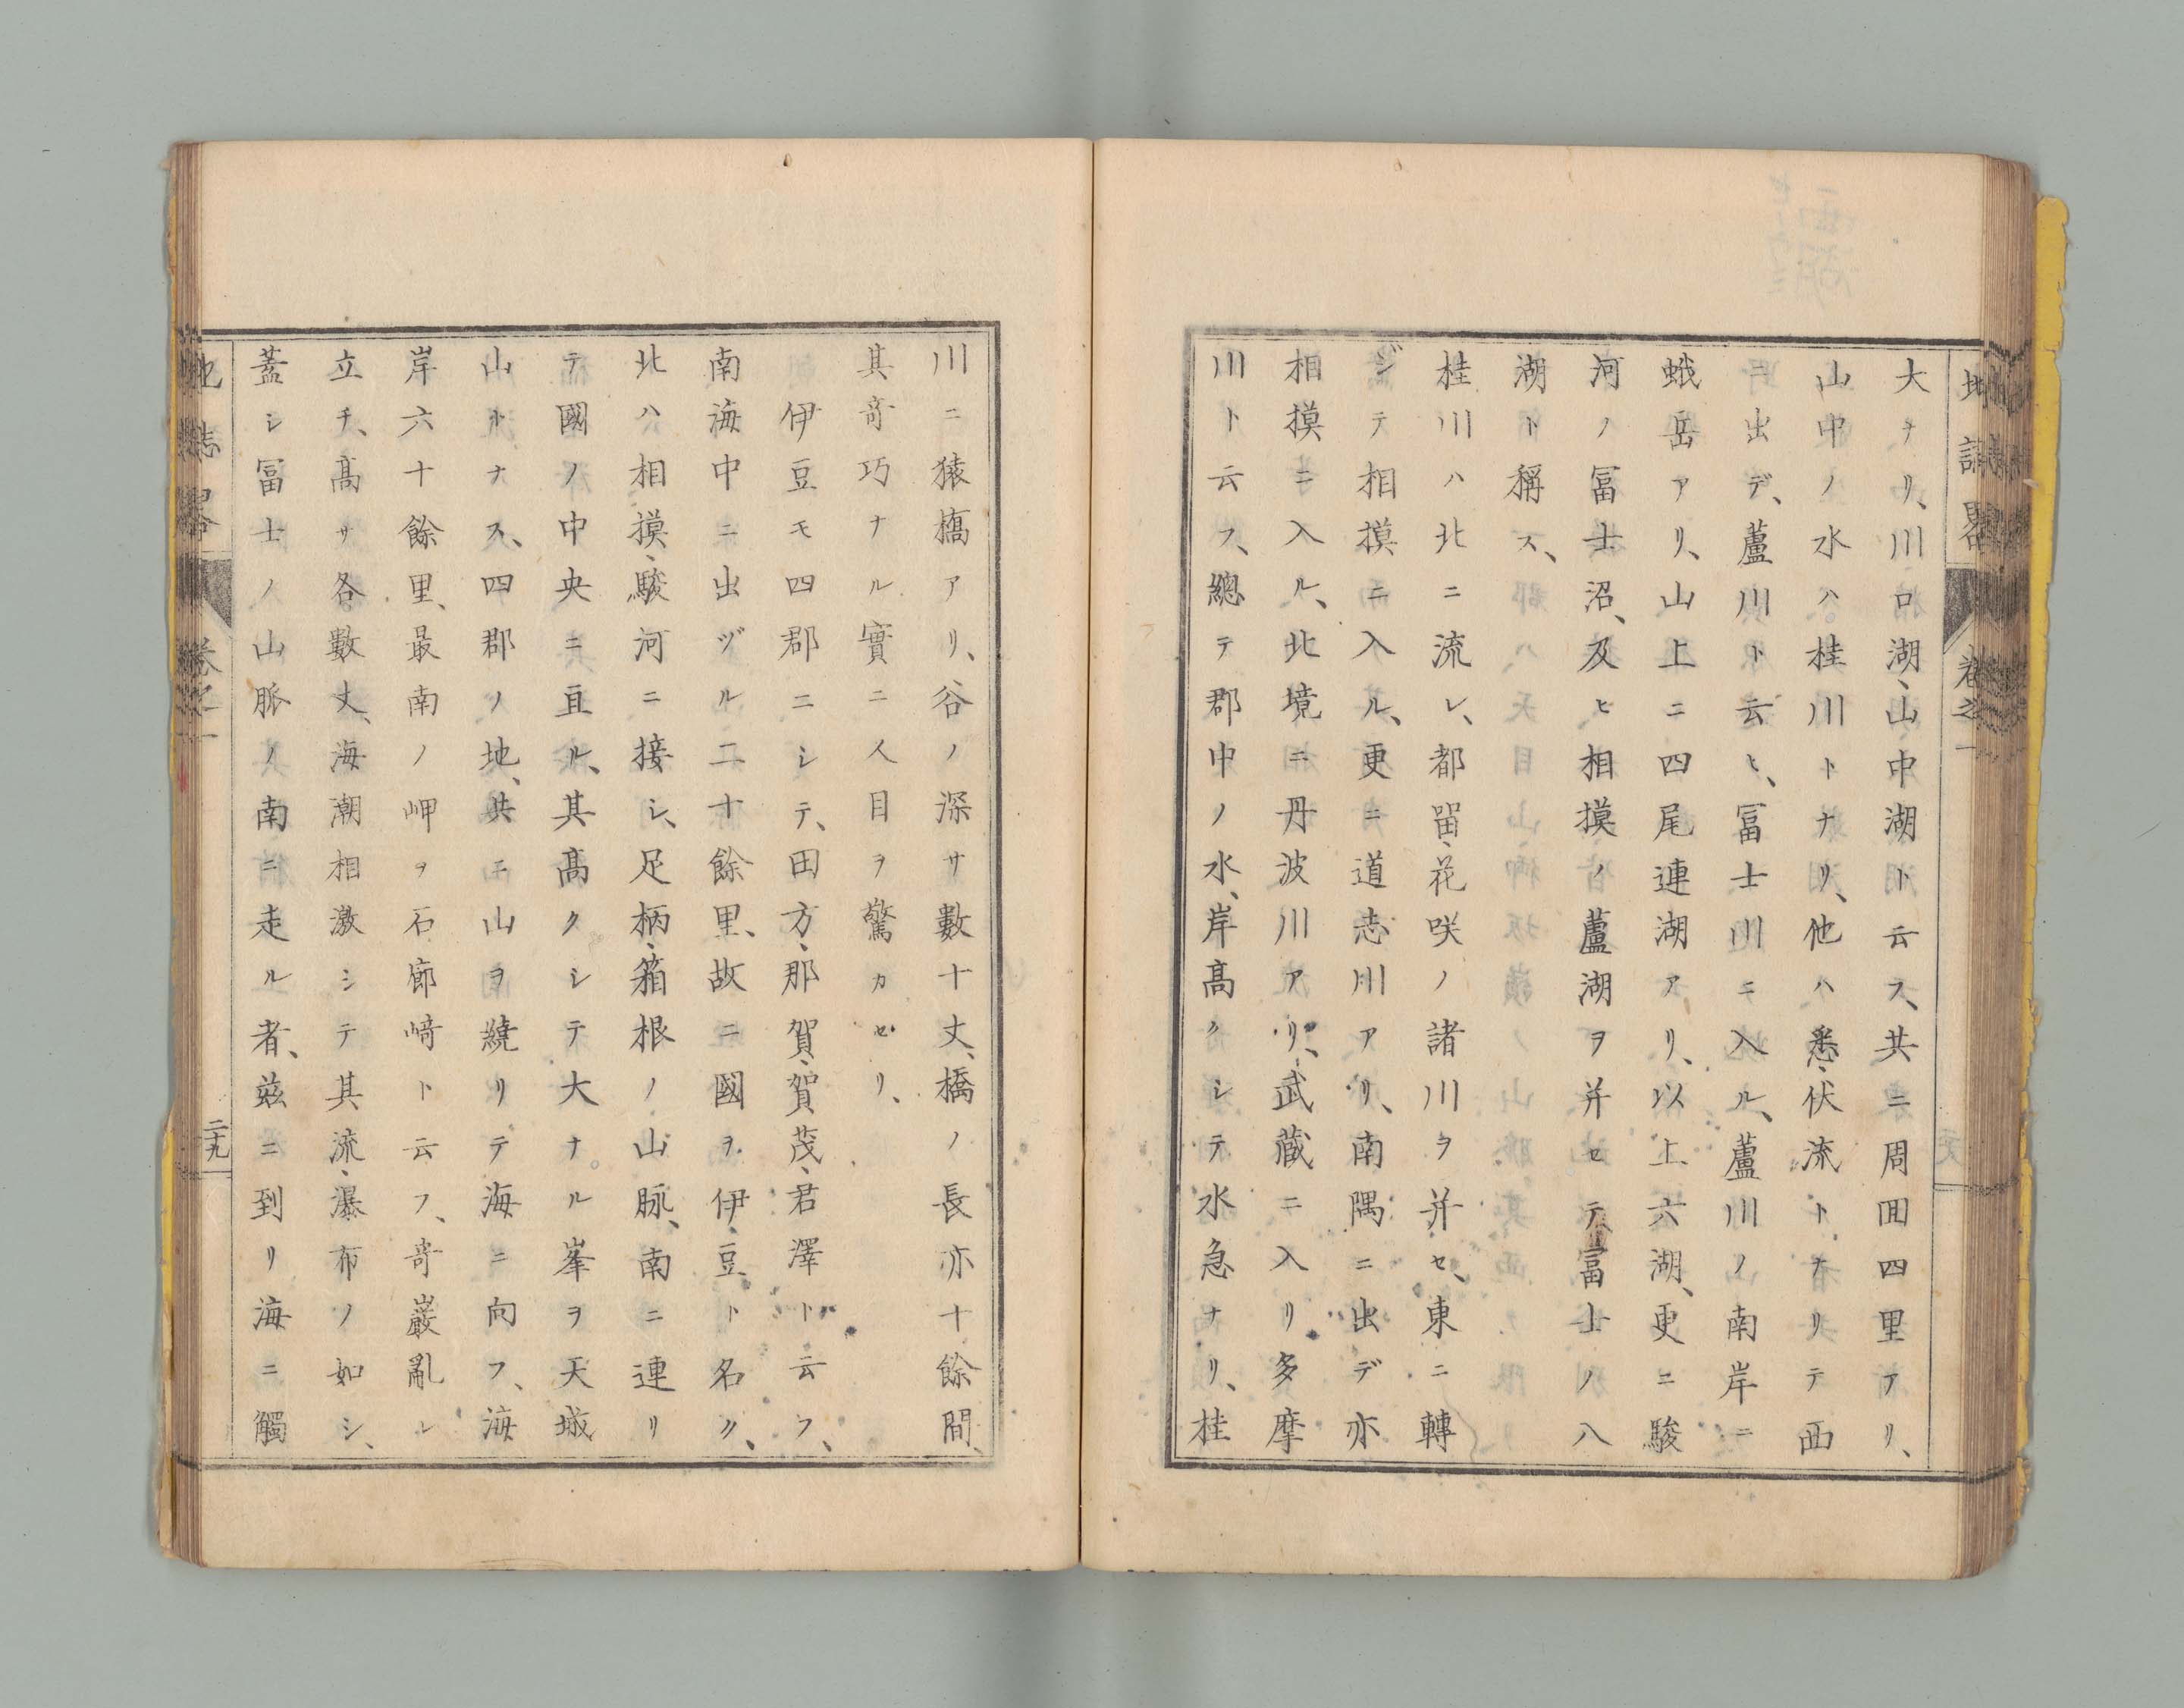 地誌畧 卷之一
大ナリ、川口湖、山中湖ト云ス、共ニ周囬四里アリ、
山中ノ水ハ桂川トナリ、他ハ悉、伏流トナリテ西
ニ出デ、蘆川ト云ヒ、冨士川ニ入ル、蘆川ノ南岸ニ
蛾岳アリ、山上ニ四尾連湖アリ、以上六湖、更ニ駿
河ノ冨士沼、及ヒ相摸ノ蘆湖ヲ并セテ冨士ノ八
湖ト稱ス、
桂川ハ北ニ流レ、都畱、花咲ノ諸川ヲ并セ、東ニ轉
ジテ相摸ニ入ル、更ニ道志川アリ、南隅ニ出デ亦
相摸ニ入ル、北境ニ丹波川アリ、武蔵ニ入リ多摩
川ト云フ、總テ郡中ノ水、岸髙クシテ水急ナリ、桂
川ニ猿橋アリ、谷ノ深サ數十丈、橋ノ長亦十餘間、
其竒巧ナル實ニ人目ヲ驚カセリ、
伊豆モ四郡ニシテ、田方、那賀、賀茂、君澤ト云フ、
南海中ニ出ヅル二十餘里、故ニ國ヲ伊豆ト名ク、
北ハ相摸、駿河ニ接シ、足柄、箱根ノ山脉、南ニ連リ
テ國ノ中央ニ亘ル、其髙クシテ大ナル峯ヲ天城
山トナス、四郡ノ地、共ニ山ヲ繞リテ海ニ向フ、海
岸六十餘里、最南ノ岬ヲ石廊﨑ト云フ、竒巖亂レ
立チ、髙サ各數丈、海潮相激シテ其流、瀑布ノ如シ、
蓋シ冨士ノ山脈ノ南ニ走ル者、茲ニ到リ海ニ觸
地誌畧 卷之一 二十九